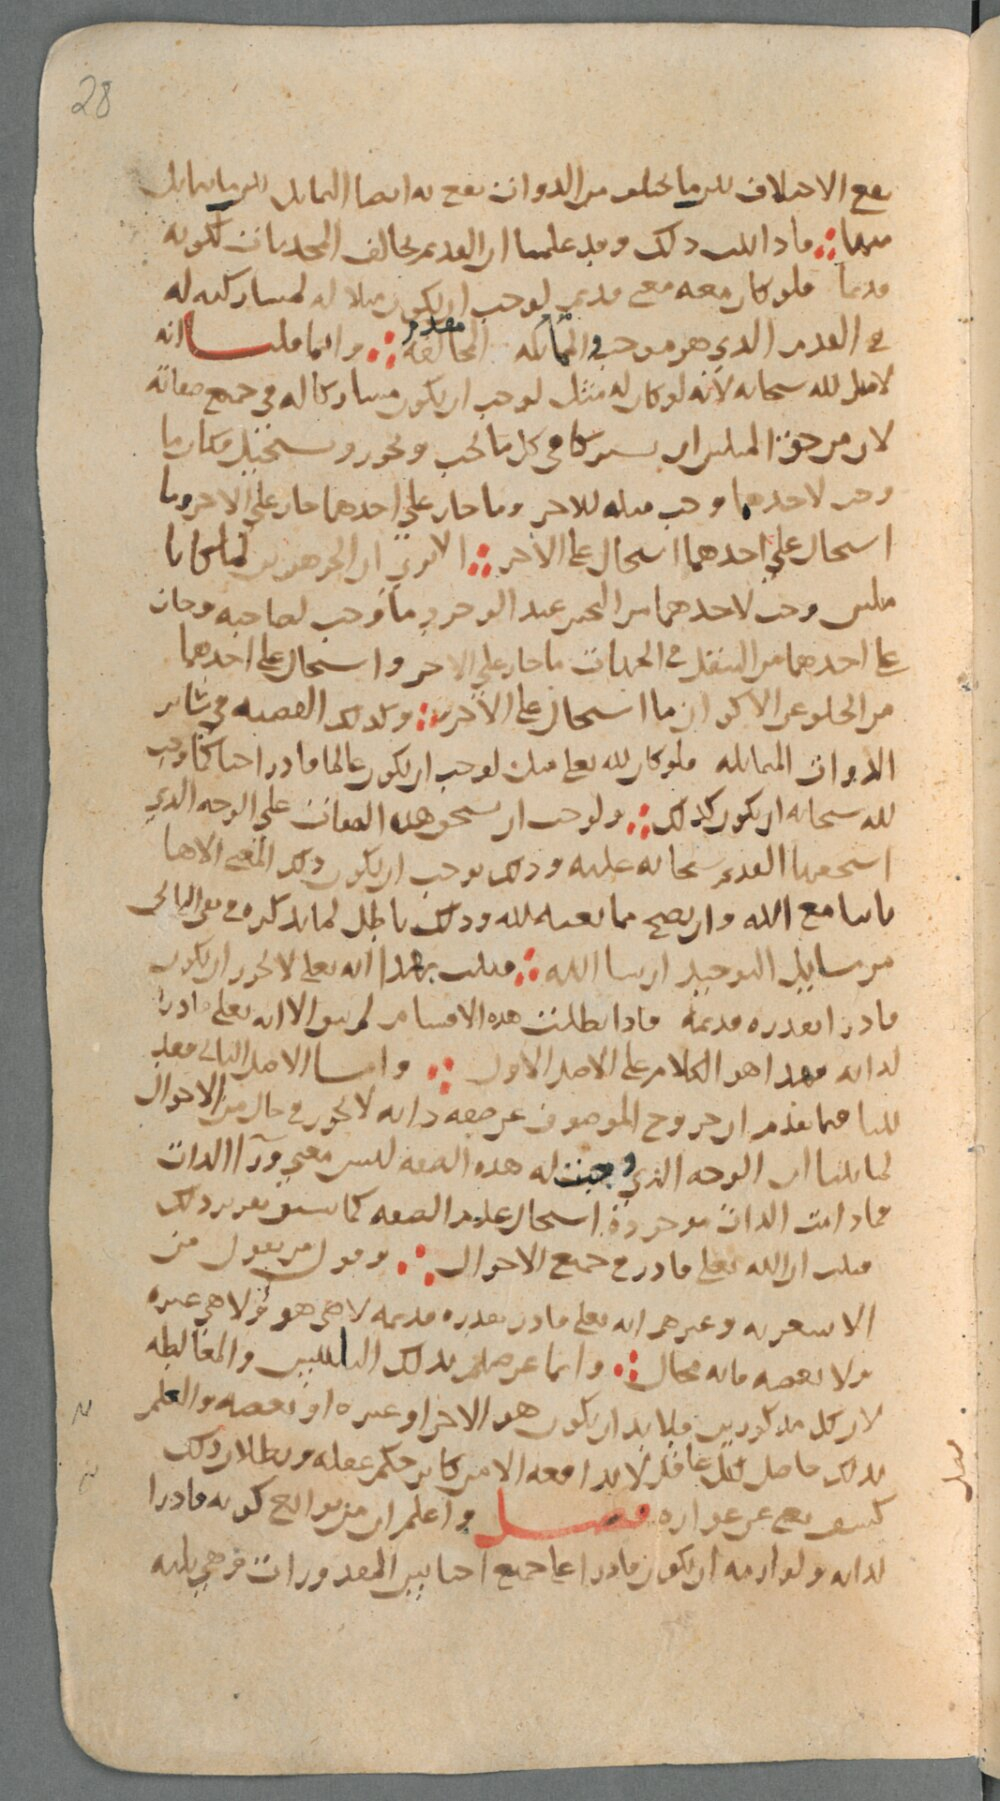 28
يقع الاختلاف بين ما يختلف من الذوات يقع به ايضا التماثل بين ما يتماثل
منها فاذا ثبت ذلك وقد علمنا ان القديم يخالف المحدثات لكونه
قديما فلو كان معه معنى قديم لوجب ان يكون مثلا له لمشاركته له
في القدم الذي هو موجب المماثلة والمخالفة وانما قلنا انه
لا مثل لله سبحانه لانه لو كان له مثل لوجب ان يكون مشاركا له في جميع صفاته
لان من حق المثلين ان يشتركا في كل ما يجب ويجوز ويستحيل فكان ما
وجب لاحدهما وجب مثله للاخر وما جاز على احدهما جاز على الاخر وما
استحال على احدهما استحال على الاخر الا ترى ان الجوهرين لما كانا
مثلين وجب لاحدهما من التحيز عند الوجود ما وجب لصاحبه وجاز
على احدهما من التنقل في الجهات ما جاز على الاخر واستحال على احدهما
من الخلو عن الاكوان ما استحال على الاخر وكذلك القضية في سائر
الذوات المتماثلة فلو كان لله تعلى مثل لوجب ان يكون عالما قادرا حيا كما وجب
لله سبحانه ان يكون كذلك ولوجب ان يستحق هذه الصفات على الوجه الذي
استحقها القديم سبحانه عليه وذلك يوجب ان يكون ذلك المعنى الاها
ثانيا مع الله وان يصح منا نعبده لله وذلك باطل لما نذكره في نفي الثاني
من مسايل التوحيد ان شا الله فثبت بهذا انه تعلى لا يجوز ان يكون
قادرا بقدرة قديمة فاذا بطلت هذه الاقسام لم يبق الا انه تعلى قادرا
لذاته فهذا هو الكلام على الاصل الاول واما الاصل الثاني فقد
بينا فيما تقدم ان خروج الموصوف عن صفة ذاته لا يجوز في حال من الاحوال
لما بينا ان الوجه الذي وجبت له هذه الصفة ليس معنى ورآ الذات
فما دامت الذات موجودة استحال عدم الصفة كما سبق تقرير ذلك
فثبت ان الله تعلى قادر في جميع الاحوال وقول من يقول من
الاشعرية وغيرهم انه تعلى قادر بقدرة قديمة لا هي هو ولا هي غيره
ولا بعضه فانه محال وانما غرضهم بذلك التلبيس والمغالطة
لان كل مذكورين فلا بد ان يكون هو الاخر او غيره او بعضه والعلم
بذلك حاصل لكل عاقل لا يدافعه الا من كابر حكم عقله وبطلان ذلك
يكشف عن عواره فصل واعلم ان من توابع كونه قادرا
لذاته ولوازمه ان يكون قادرا على جميع اجناس المقدورات فهي ثلثة